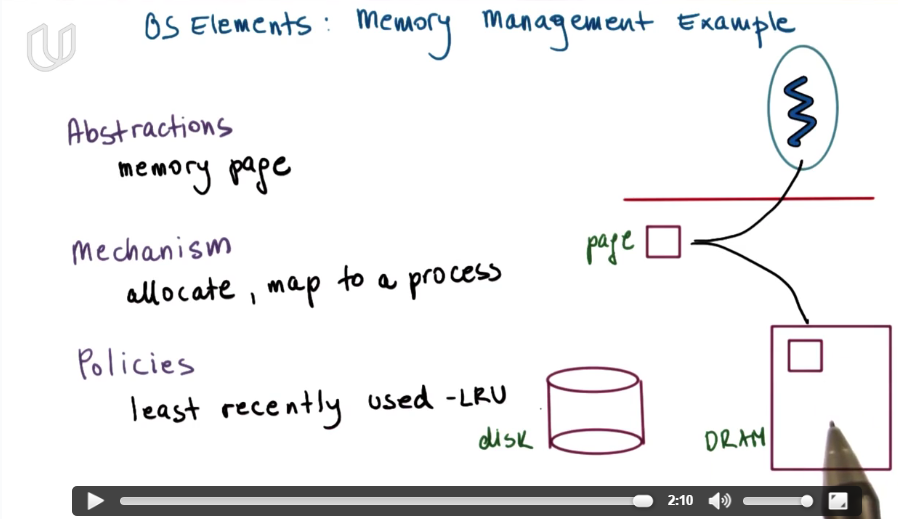 OS Elements: Memory Management Example
Abstractions
memory page
Mechanism
allocate, map to a process
Policies
least recently used -LRU
page
disk
DRAM
2:10